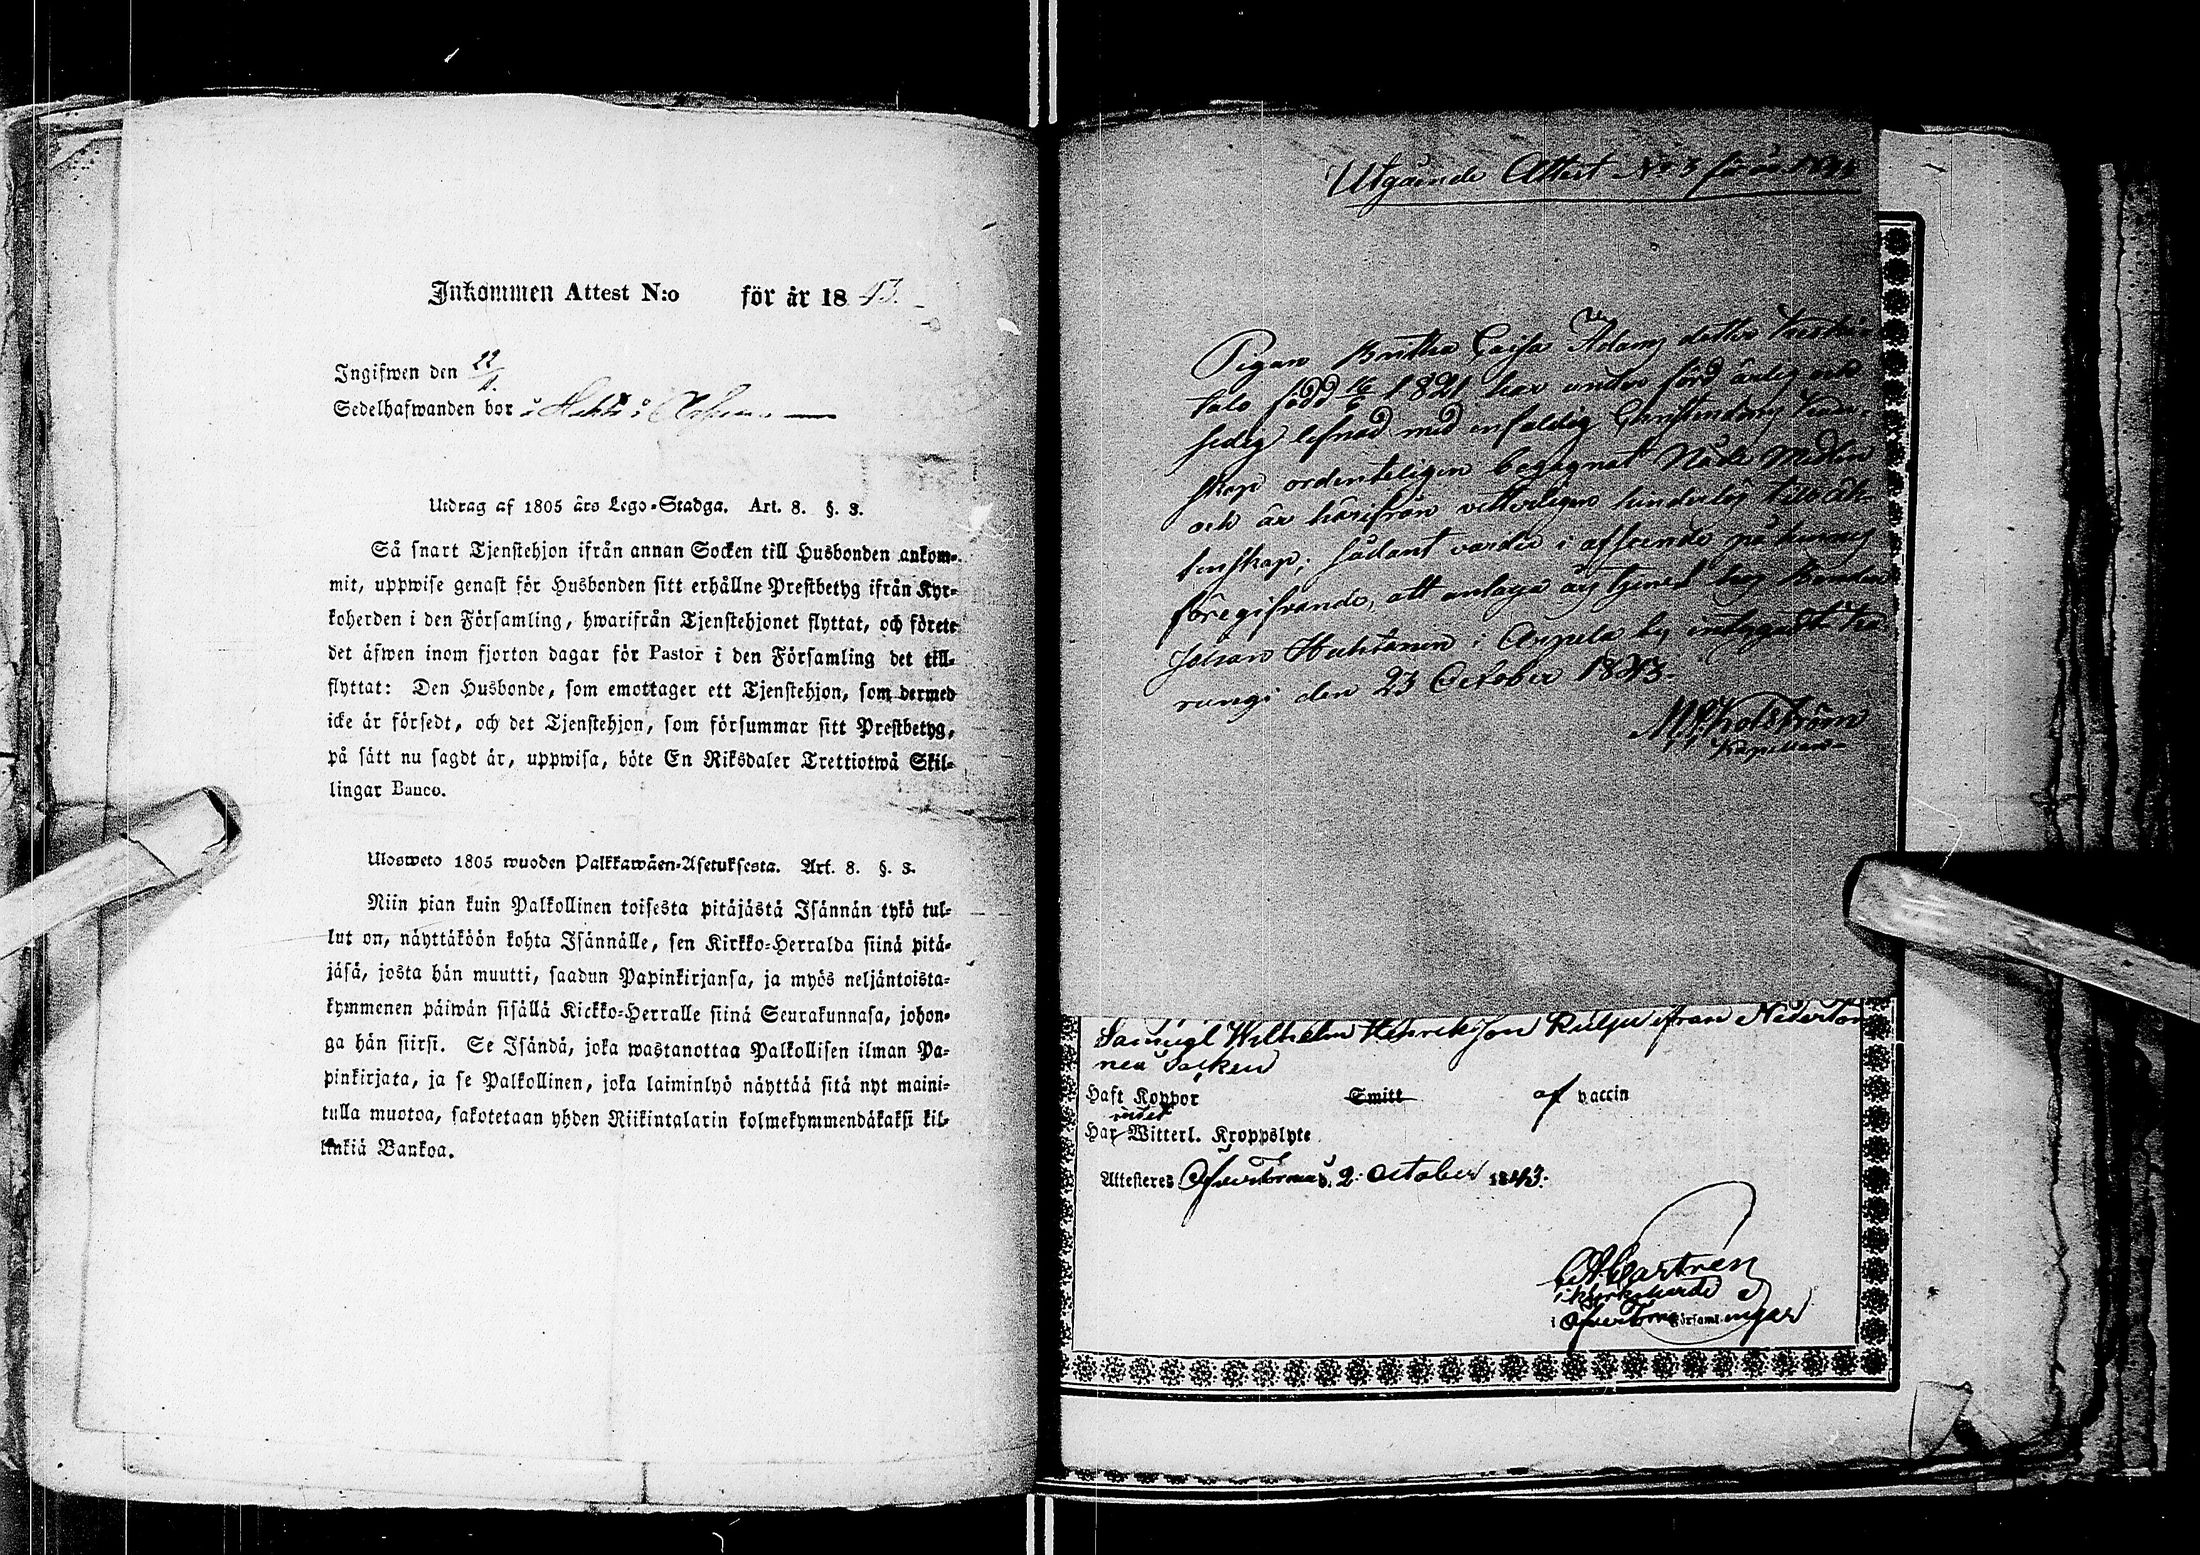 Inkommen Attest N:o för år 1843.
Ingifwen den 22/11.
Sedelhafwanden bor i
Utdrag af 1805 års Lego-Stadga. Art. 8. §. 3.
Så snart Tjenstehjon ifrån annan Socken till Husbonden ankom-
mit, uppwise genast för Husbonden sitt erhållne Prestbetyg ifrån Kyr-
koherden i den Församling, hwarifrån Tjenstehjonet flyttat, och förete
det äfwen inom fjorton dagar för Pastor i den Församling det till-
flyttat: Den Husbonde, som emottager ett Tjenstehjon, som dermed
icke är försedt, och det Tjenstehjon, som försummar sitt Prestbetyg,
på sätt nu sagdt är, uppwisa, böte En Riksdaler Trettiotwå Skil-
lingar Banco.
Ulosweto 1805 wuoden Palkkawäen-Asetuksesta. Art. 8. §. 3.
Niin pian kuin Palkollinen toisesta pitäjästä Isännän tykö tul-
lut on, näyttäköön kohta Isännälle, sen Kirkko-Herralda siinä pitä-
jäsä, josta hän muutti, saadun Papinkirjansa, ja myös neljäntoista-
kymmenen päiwän sisällä Kirkko-Herralle siinä Seurakunnasa, johon-
ga hän siirsi. Se Isändä, joka wastanottaa Palkollisen ilman Pa-
pinkirjata, ja se Palkollinen, joka laiminlyö näyttää sitä nyt maini-
tulla muotoa, sakotetaan yhden Riikintalarin kolmekymmendäkaksi kil-
linkiä Bankoa.
Utgående Attest No 3 för år
Pigan Britha Caisa Adams dotter
talo född 16/6 1821 har under förd ärlig och
sedig lefnad med enfaldig Christendoms kun-
skap ordenteligen begagnat Nåde Medlen
och är härifrån vitterligen hinderlös till äk-
tenskap; sådant varder i afseende på hennes
föregifvande, att antaga års tjenst hos Bonden
Johan Huhtanen i Anpela by intygadt Ka-
rungi den 23 October 1843.
Kapellan
Samuel Wilhelm Henriksson ifrån Nedertor-
nea Socken
Haft Koppor Smitt af vaccin
intet
Har Witterl. Kroppslyte
Attesteres Öfvertorneå d. 2. October 1843.
C A Castrén
kyrkoherde
i Öfvertorneå Församlingar